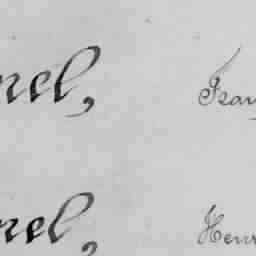 nel, Fran
nel, Henr